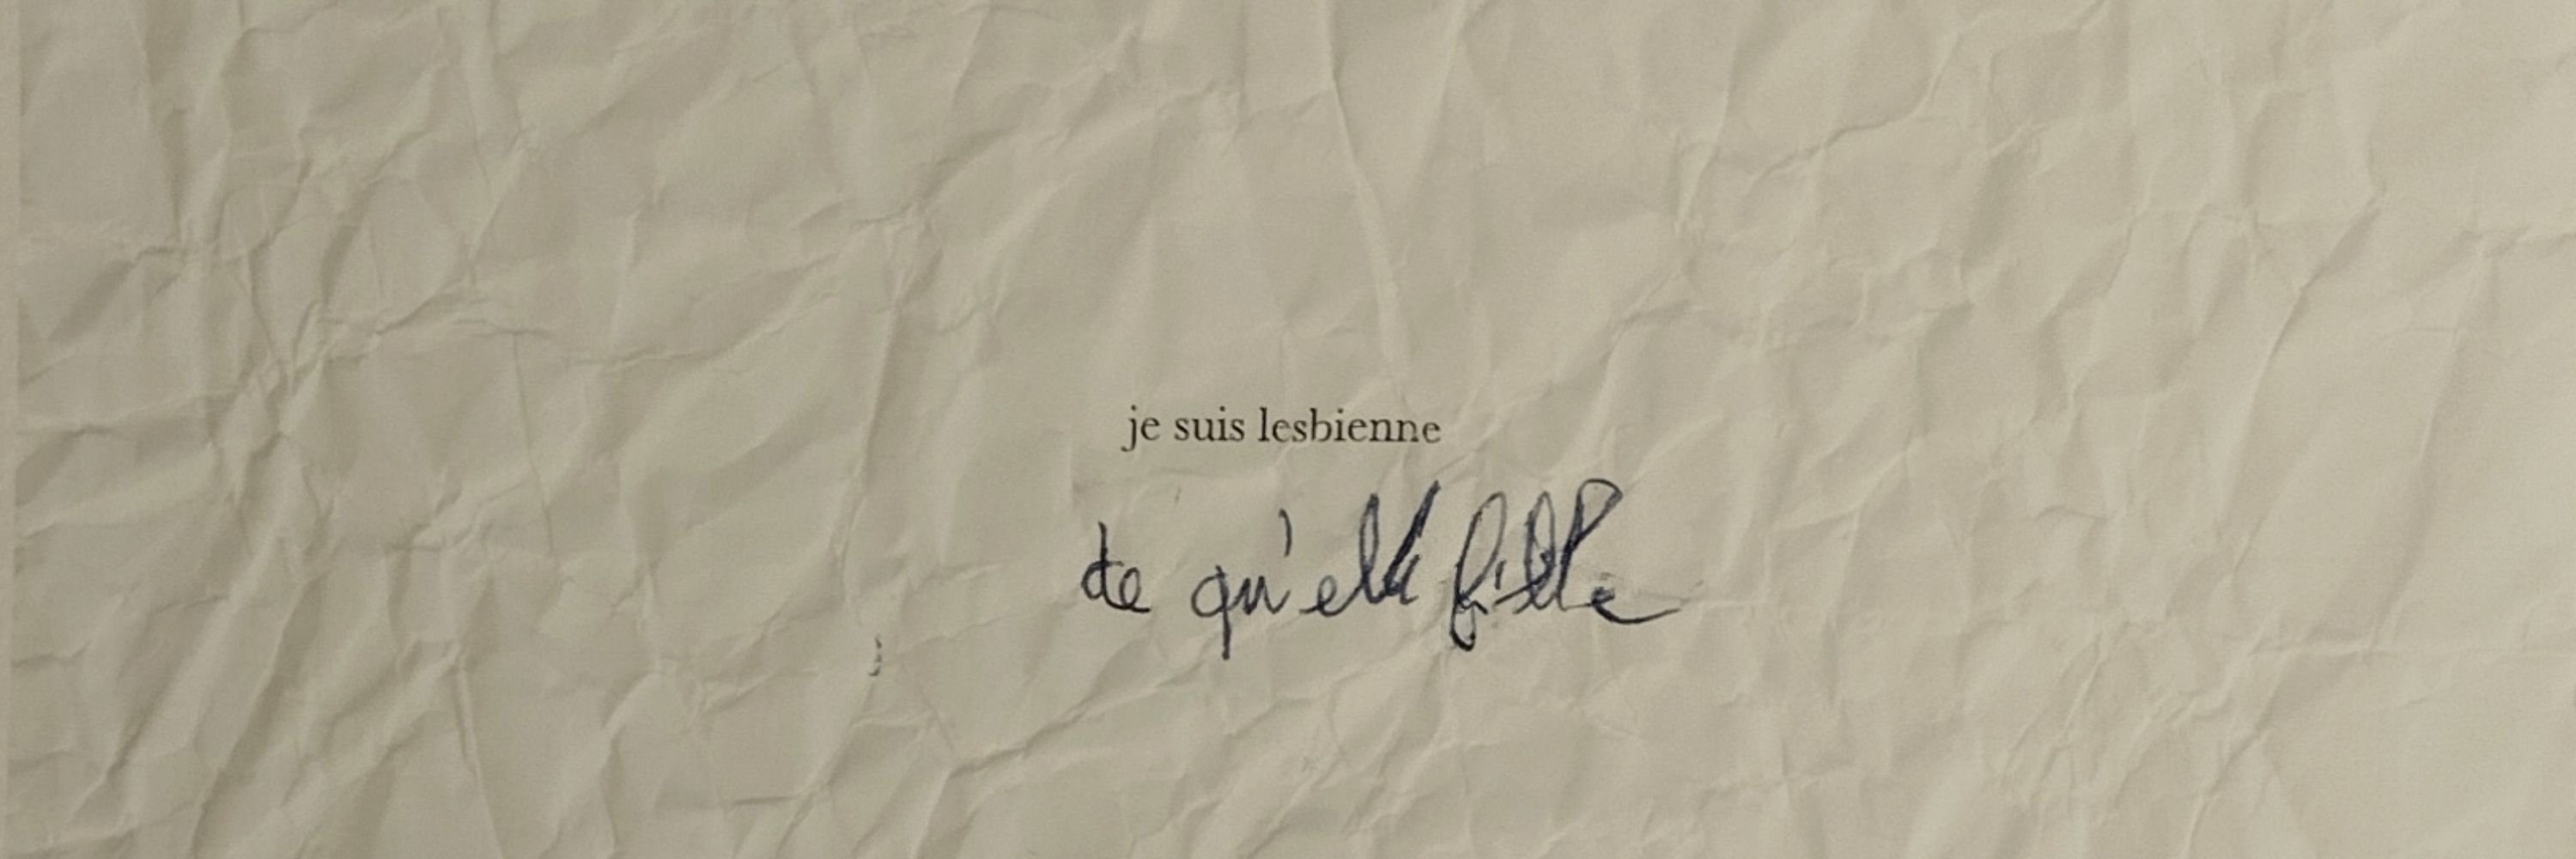 je suis lesbienne
de qu'elle fille